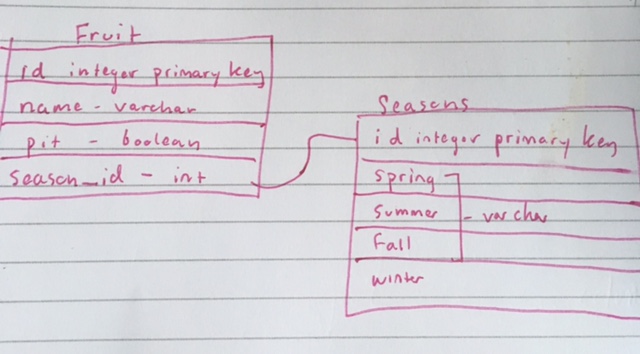 Fruit
id integer primary key
name - varchar
pit - boolean
season_id - int
Seasons
id integer primary key
spring
summer - varchar
Fall
winter